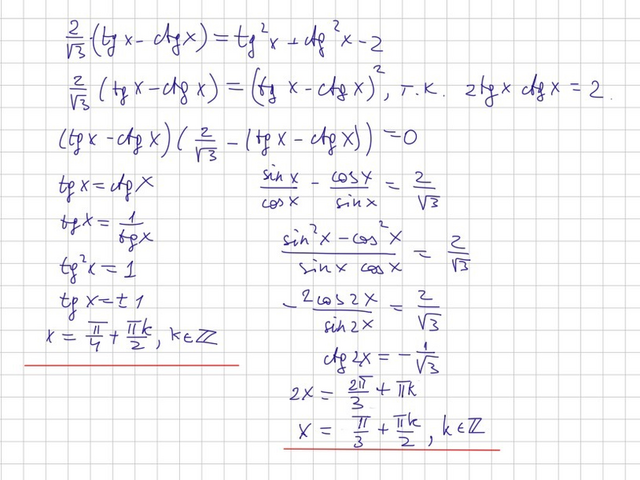 2/√3 · (tgx - ctgx) = tg²x + ctg²x - 2
2/√3 (tgx - ctgx) = (tgx - ctgx)², т.к. 2tgx ctgx = 2.
(tgx - ctgx)(2/√3 - (tgx - ctgx)) = 0
tgx = ctgx
tgx = 1/tgx
tg²x = 1
tgx = ±1
x = π/4 + πk/2, k∈ℤ
sinx/cosx - cosx/sinx = 2/√3
(sin²x - cos²x)/(sinx cosx) = 2/√3
-2cos2x/sin2x = 2/√3
ctg2x = -1/√3
2x = 2π/3 + πk
x = π/3 + πk/2, k∈ℤ